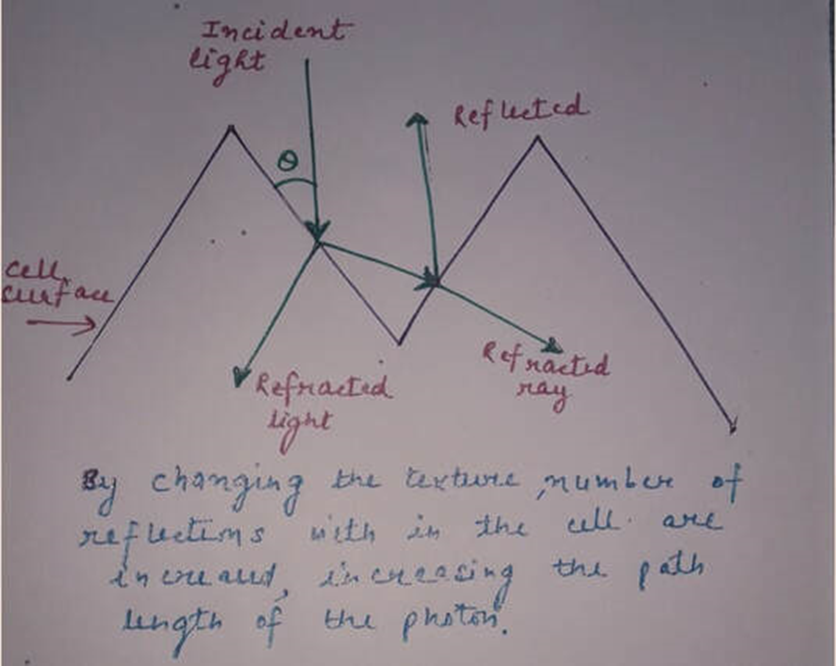 Incident
light
θ
Reflected
cell
surface
Refracted
light
Refracted
ray
By changing the texture, number of
reflections with in the cell are
increased, increasing the path
length of the photon.